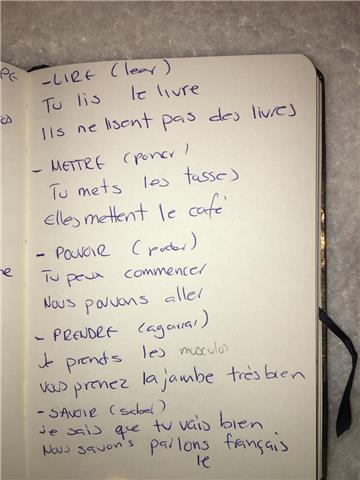 - LIRE (leer)
Tu lis le livre
Ils ne lisent pas des livres
- METTRE (poner)
Tu mets les tasses
Elles mettent le café
- POUVOIR (poder)
Tu peux commencer
Nous pouvons aller
- PRENDRE (agarrar)
Je prends les musculos
Vous prenez la jambe très bien
- SAVOIR (saber)
Je sais que tu vais bien
Nous savons parlons français
le